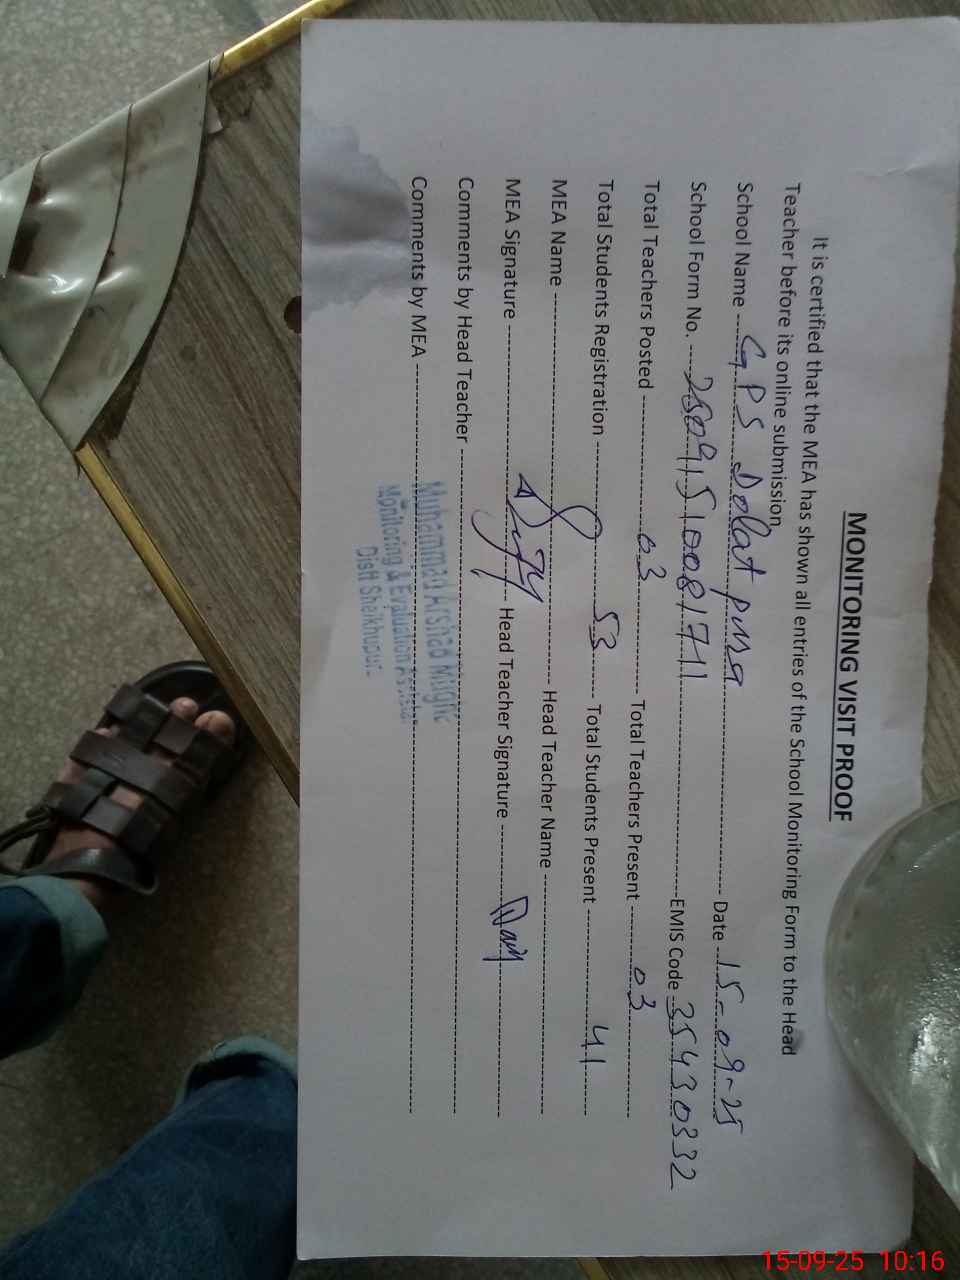 MONITORING VISIT PROOF
It is certified that the MEA has shown all entries of the School Monitoring Form to the Head
Teacher before its online submission
School Name GPS Dolat pura Date 15-09-25
School Form No. 25091510081711 EMIS Code 35430332
Total Teachers Posted 03 Total Teachers Present 03
Total Students Registration 53 Total Students Present 41
MEA Name Head Teacher Name
MEA Signature Head Teacher Signature
Comments by Head Teacher
Comments by MEA
Muhammad Arshad
Monitoring & Evaluation
Distt Sheikhupur
15-09-25 10:16